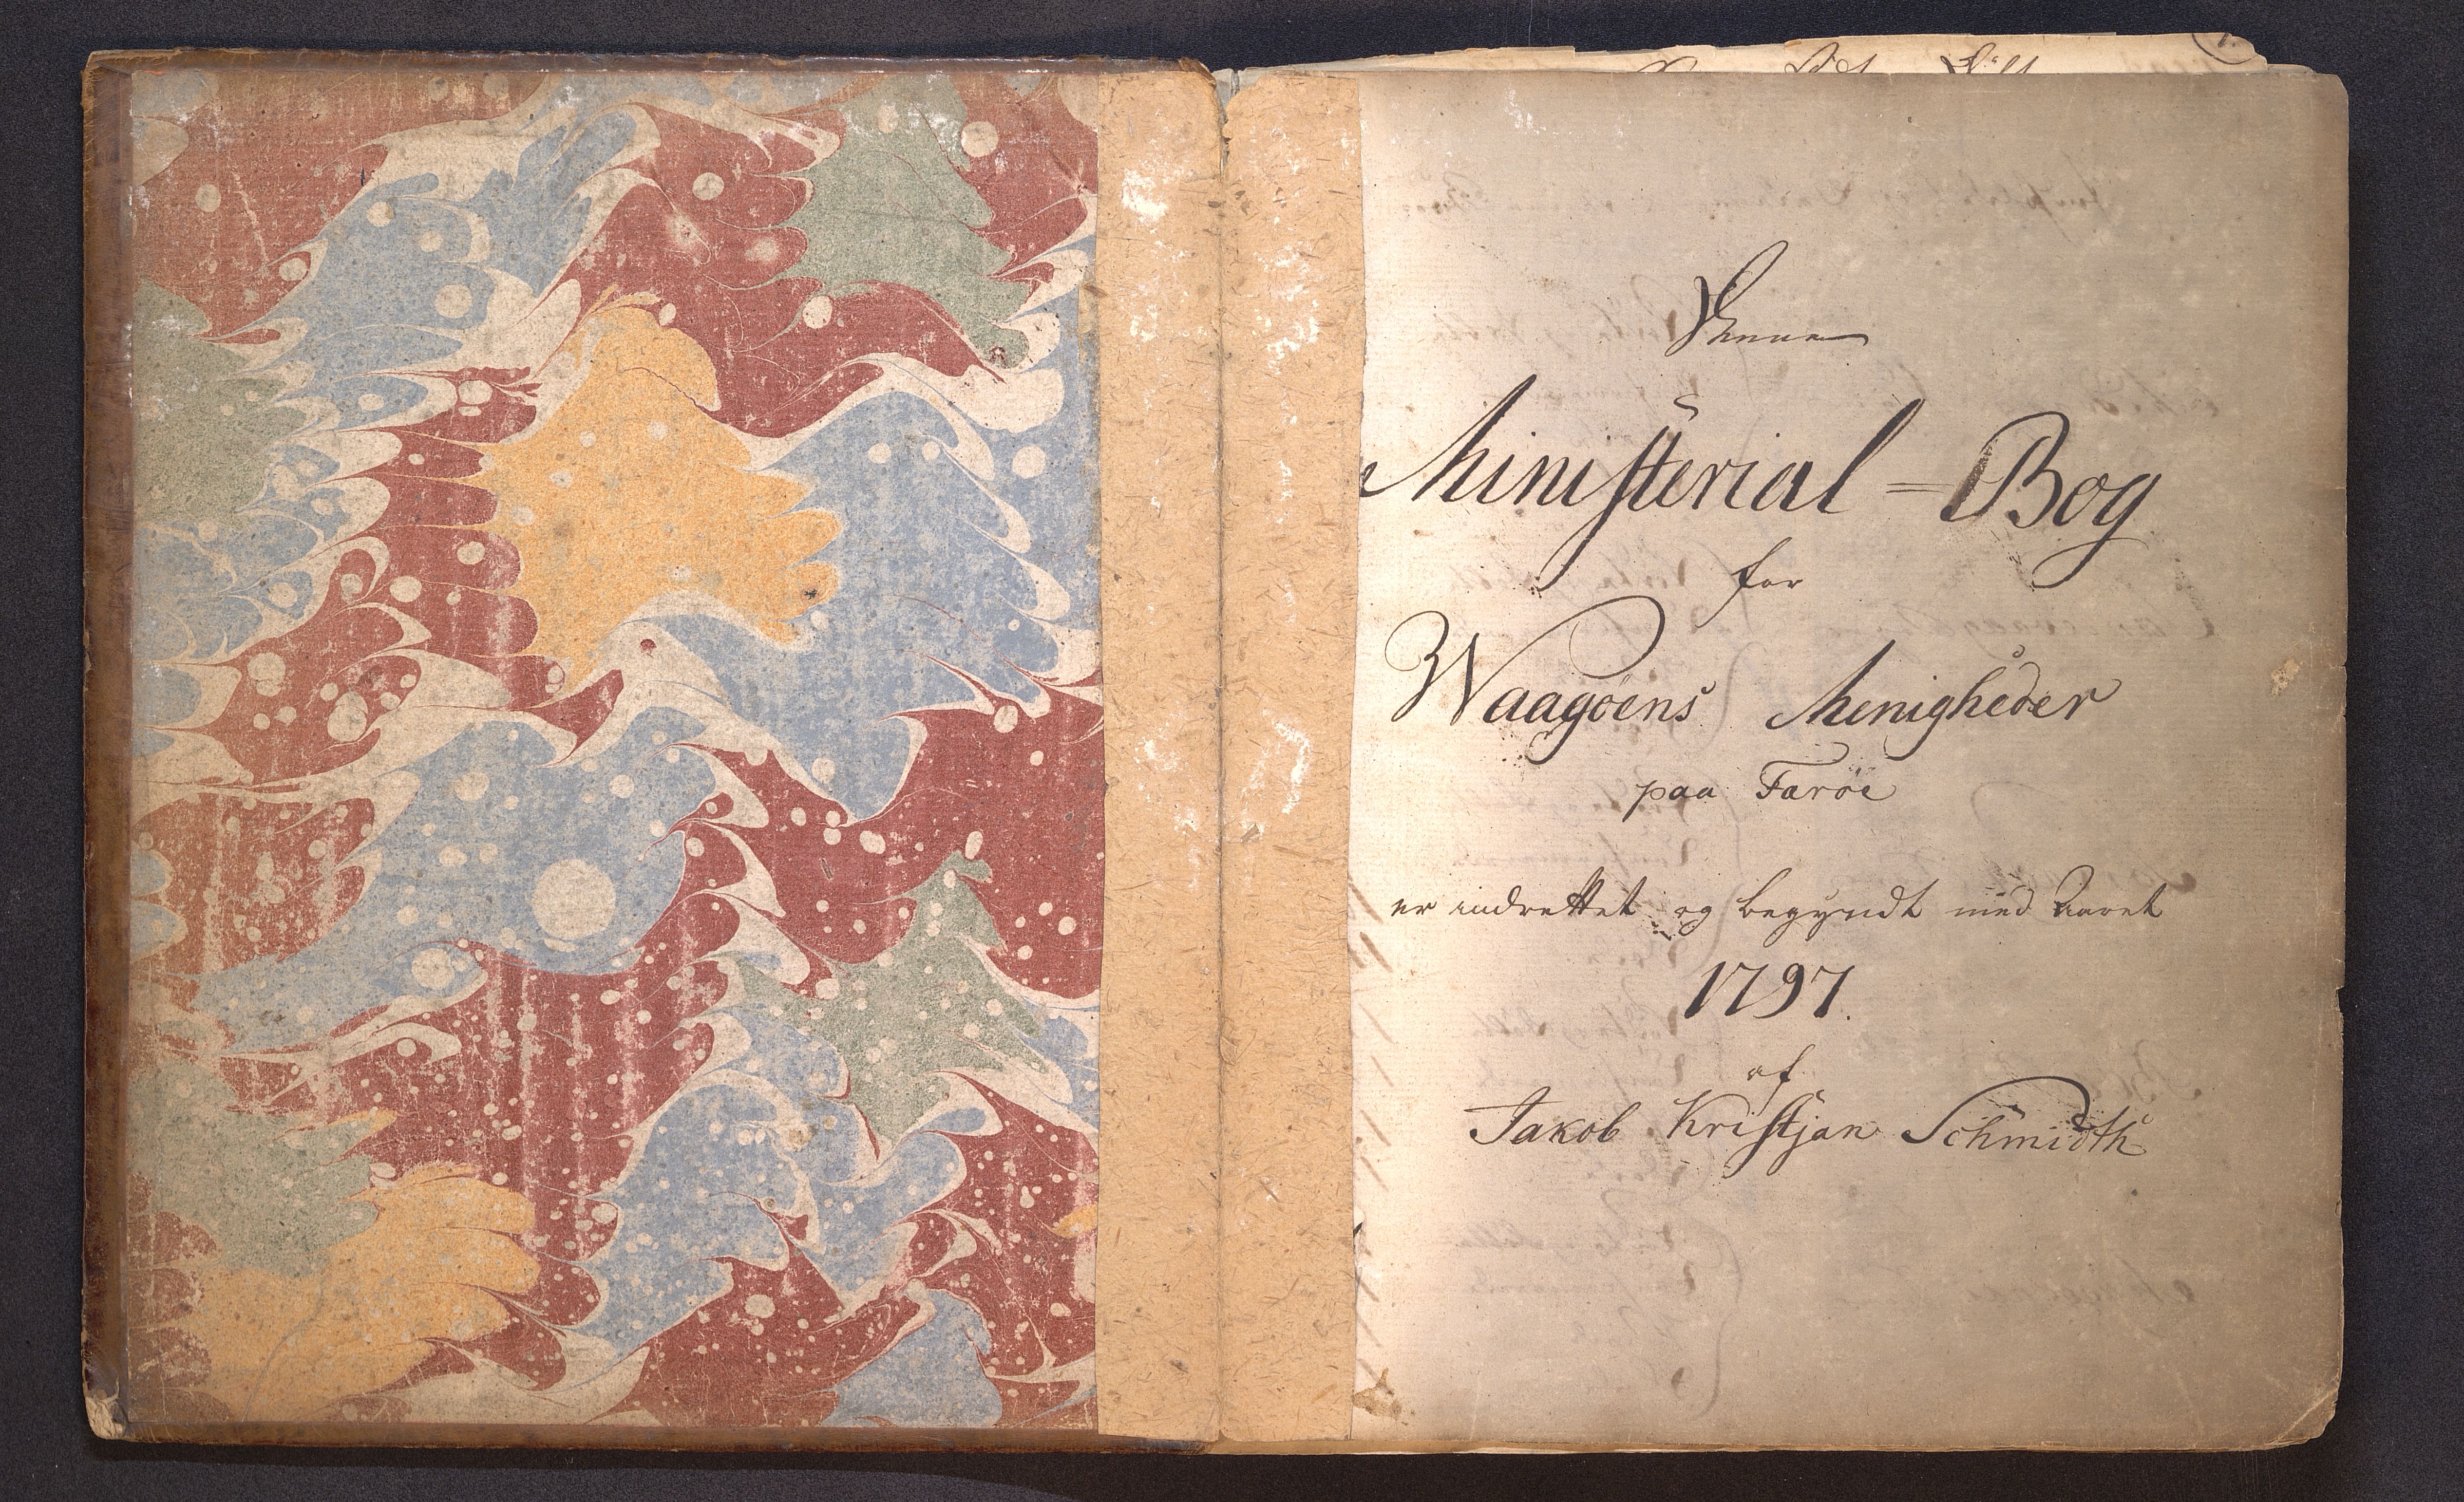 Denne
Ministerial=Bog
for
Waagøens Menigheder
paa Færöe
er indrettet og begyndt med Aaret
1797.
af
Jakob Kristjan Schmidth